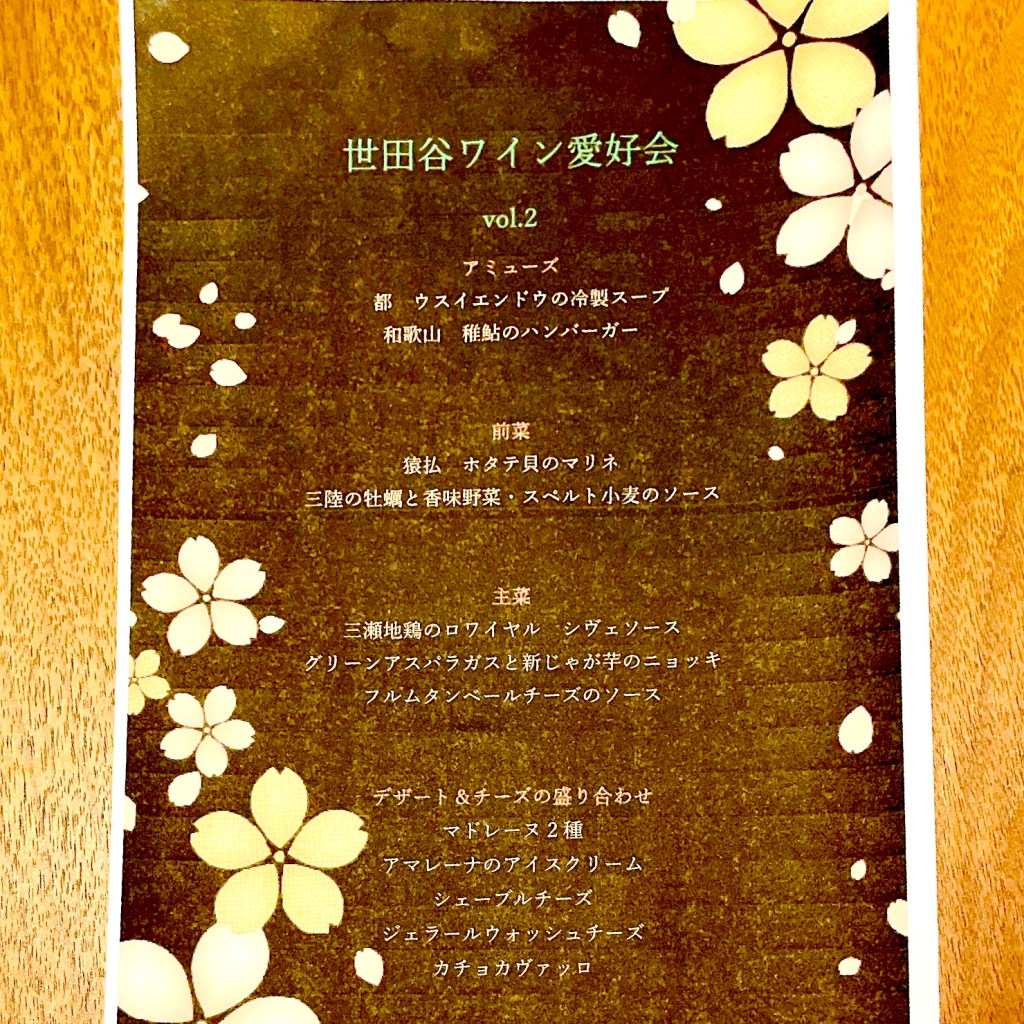 世田谷ワイン愛好会
vol.2
アミューズ
都　ウスイエンドウの冷製スープ
和歌山　稚鮎のハンバーガー
前菜
猿払　ホタテ貝のマリネ
三陸の牡蠣と香味野菜・スペルト小麦のソース
主菜
三瀬地鶏のロワイヤル　シヴェソース
グリーンアスパラガスと新じゃが芋のニョッキ
フルムタンベールチーズのソース
デザート＆チーズの盛り合わせ
マドレーヌ２種
アマレーナのアイスクリーム
シェーブルチーズ
ジェラールウォッシュチーズ
カチョカヴァッロ